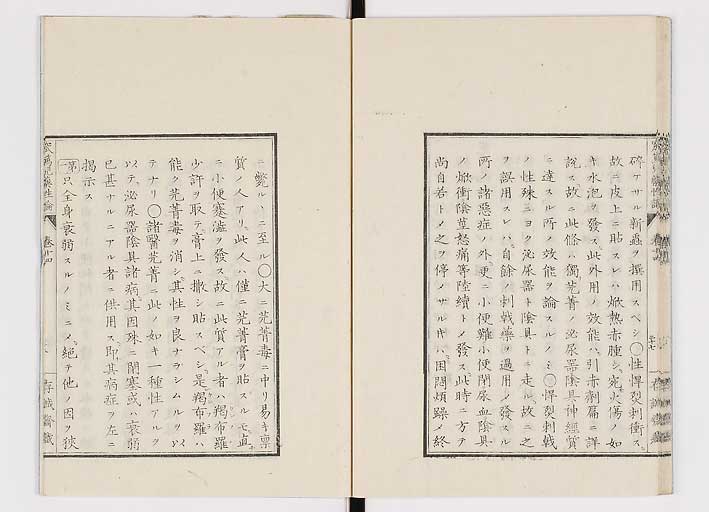 碎アサル新蟲ヲ撰用スベシ〇性悍烈刺衝ス
故ニ皮上ニ貼スレハ焮熱赤腫シ宛火傷ノ如
キ水泡ヲ發ス此外用ノ效能ハ引赤劑篇ニ詳
説ス故ニ此條ハ獨芫菁ノ泌尿器陰具神經質
ニ達スル所ノ效能ヲ論スルノミ〇悍烈刺戟
ノ性殊ニヨク泌尿器ト陰具トニ走ル故ニ之
ヲ誤用スレハ自餘ノ刺戟藥ヲ過用ノ發スル
所ノ諸惡症ノ外更ニ小便難小便閉尿血陰具
ノ焮衝陰莖怒痛等陸續トノ發ス此時ニ方テ
尚自若トノ之ヲ停メサルキハ困悶煩躁メ終
ニ斃ルヽニ至ル〇大ニ芫菁毒ニ中リ易キ稟
質ノ人アリ此人ハ僅ニ芫菁膏ヲ貼スルモ直
ニ小便塞澁ヲ發ス故ニ此質アル者ハ羯布羅
少許ヲ取テ膏上ニ撒シ貼スベシ是羯布羅ハ
能ク芫菁毒ヲ消シ其性ヲ良ナラシムルヲ以
テナリ〇諸醫芫菁ニ此ノ如キ一種性アルヲ
以テ泌尿器陰具諸病其因殊ニ閉塞或ハ衰弱
已甚ナルニアル者ニ供用ス即其病症ヲ左ニ
掲示ス
第一只全身衰弱スルノミニメ絶テ他ノ因ヲ挾
卷十四
存誠齋藏